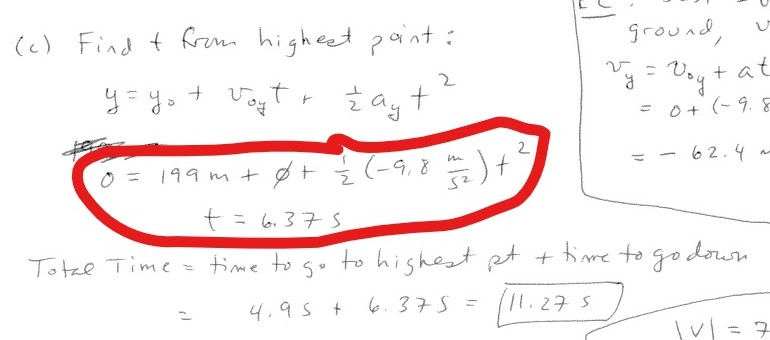 (c) Find t from highest point:
y = y₀ + v₀yt + ½ ay t²
0 = 199 m + ∅ + ½ (-9.8 m/s²) t²
t = 6.37 s
Total Time = time to go to highest pt + time to go down
= 4.9 s + 6.37 s = 11.27 s
ground,
vy = v₀y + at
= 0 + (-9.8
= - 62.4
|v| = 7